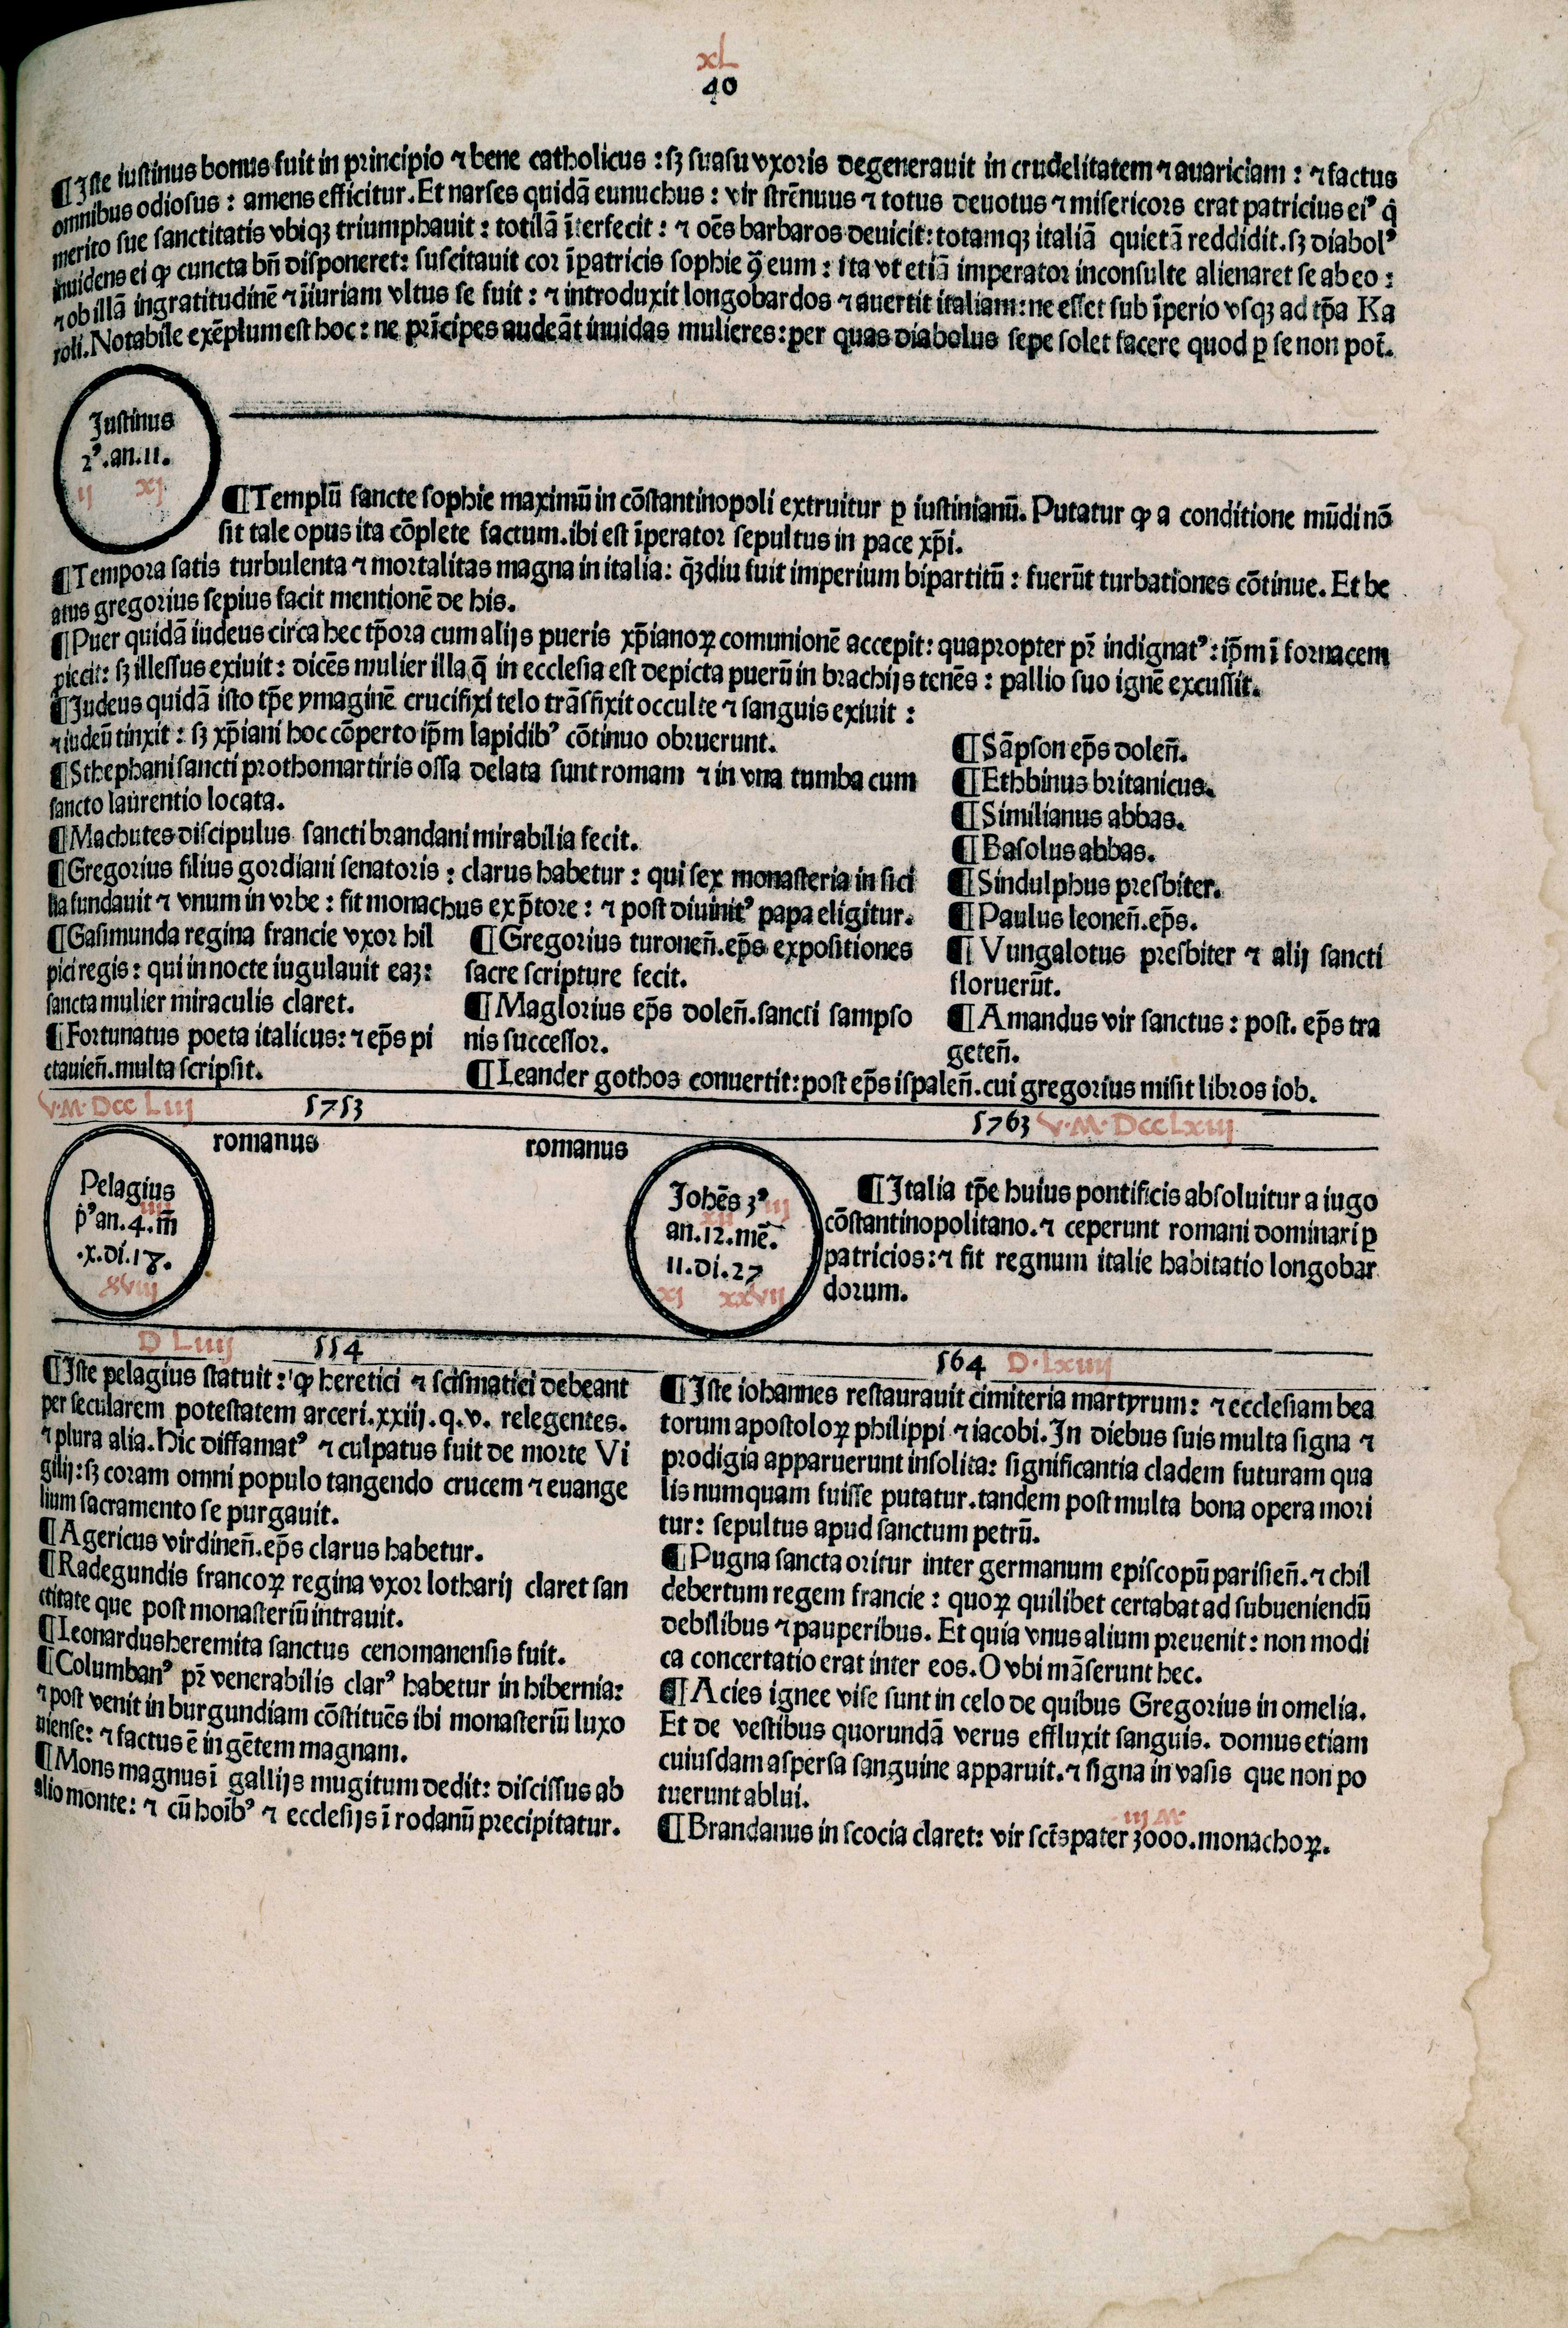 xL
40
¶Iste iustinus bonus fuit in principio ⁊ bene catholicus : sꝫ suasu vxoris degenerauit in crudelitatem ⁊ auariciam : ⁊ factus
omnibus odiosus : amens efficitur. Et narses quidā eunuchus : vir strēnuus ⁊ totus deuotus ⁊ misericors erat patricius eiꝰ q̇
merito sue sanctitatis vbiqꝫ triumphauit : totilā īterfecit : ⁊ oēs barbaros deuicit: totamqꝫ italiā quietā reddidit. sꝫ diabolꝰ
inuidens ei ꝙ cuncta bn̄ disponeret: suscitauit cor īpatricis sophie ꝯ̄ eum : ita vt etiā imperator inconsulte alienaret se ab eo :
⁊ ob illā ingratitudinē ⁊ iīuriam vltus se fuit : ⁊ introduxit longobardos ⁊ auertit italiam: ne esset sub īperio vsqꝫ ad tp̄a Ka
roli. Notabile exēplum est hoc : ne prīcipes audeāt inuidas mulieres: per quas diabolus sepe solet facere quod ꝑ se non pot̄.
Justinus
2ꝰ. an. 11.
ij xj
¶Templū sancte sophie maximū in cōstantinopoli extruitur ꝑ iustinianū. Putatur ꝙ a conditione mūdi nō
sit tale opus ita cōplete factum. ibi est īperator sepultus in pace xp̄i.
¶Tempora satis turbulenta ⁊ mortalitas magna in italia: qꝫdiu fuit imperium bipartitū : fuerūt turbationes cōtinue. Et be
atus gregorius sepius facit mentionē de his.
¶Puer quidā iudeus circa hec tp̄ora cum alijs pueris xp̄ianoꝝ comunionē accepit: quapropter pr̄ indignatꝰ : ip̄m ī fornacem
piecit: sꝫ illesus exiuit : dicēs mulier illa q̄ in ecclesia est depicta puerū in brachijs tenēs : pallio suo ignē excussit.
¶Judeus quidā isto tp̄e ymaginē crucifixi telo trāsfixit occulte ⁊ sanguis exiuit :
⁊ iudeū tinxit : sꝫ xp̄iani hoc cōperto ip̄m lapidibꝰ cōtinuo obruerunt.
¶Sthephani sancti prothomartiris ossa delata sunt romam ⁊ in vna tumba cum
sancto laurentio locata.
¶Machutes discipulus sancti brandani mirabilia fecit.
¶Gregorius filius gordiani senatoris : clarus habetur : qui sex monasteria in sici
lia fundauit ⁊ vnum in vrbe : fit monachus ex p̄tore : ⁊ post diuinitꝰ papa eligitur.
¶Sāpson ep̄s dolen̄.
¶Ethbinus britanicus.
¶Similianus abbas.
¶Basolus abbas.
¶Sindulphus presbiter.
¶Paulus leonen̄. ep̄s.
¶Vungalotus presbiter ⁊ alij sancti
floruerūt.
¶Amandus vir sanctus : post. ep̄s tra
geten̄.
¶Gasimunda regina francie vxor hil
pici regis : qui in nocte iugulauit eaꝫ:
sancta mulier miraculis claret.
¶Fortunatus poeta italicus: ⁊ ep̄s pi
ctauien̄. multa scripsit.
¶Gregorius turonen̄. ep̄s expositiones
sacre scripture fecit.
¶Maglorius ep̄s dolen̄. sancti sampso
nis successor.
¶Leander gothos conuertit: post ep̄s ispalen̄. cui gregorius misit libros iob.
V.M.Dcc Liij 5753
5763 V.M.DccLxiij
romanus
romanus
Pelagius
p̄ꝰ an. 4. m̄
iiij
.x. di. 18.
xviij
Johēs 3ꝰ
iij
xij
an. 12. mē.
11. di. 27
xj xxvij
¶Italia tp̄e huius pontificis absoluitur a iugo
cōstantinopolitano. ⁊ ceperunt romani dominari ꝑ
patricios: ⁊ fit regnum italie habitatio longobar
dorum.
D Liiij 554
564 D.Lxiiij
¶Iste pelagius statuit : ꝙ heretici ⁊ scismatici debeant
per secularem potestatem arceri. xxiij. q. v. relegentes.
⁊ plura alia. Hic diffamatꝰ ⁊ culpatus fuit de morte Vi
gilij: sꝫ coram omni populo tangendo crucem ⁊ euange
lium sacramento se purgauit.
¶Agericus virdinen̄. ep̄s clarus habetur.
¶Radegundis francoꝝ regina vxor lotharij claret san
ctitate que post monasteriū intrauit.
¶Leonardus heremita sanctus cenomanensis fuit.
¶Columbanꝰ pr̄ venerabilis clarꝰ habetur in hibernia:
⁊ post venit in burgundiam cōstituēs ibi monasteriū luxo
uiense: ⁊ factus ē in gētem magnam.
¶Mons magnus ī gallijs mugitum dedit: discissus ab
alio monte: ⁊ cū hoībꝰ ⁊ ecclesijs ī rodanū precipitatur.
¶Iste iohannes restaurauit cimiteria martyrum: ⁊ ecclesiam bea
torum apostoloꝝ philippi ⁊ iacobi. In diebus suis multa signa ⁊
prodigia apparuerunt insolita: significantia cladem futuram qua
lis numquam fuisse putatur. tandem post multa bona opera mori
tur: sepultus apud sanctum petrū.
¶Pugna sancta oritur inter germanum episcopū parisien̄. ⁊ chil
debertum regem francie : quoꝝ quilibet certabat ad subueniendū
debilibus ⁊ pauperibus. Et quia vnus alium preuenit : non modi
ca concertatio erat inter eos. O vbi māserunt hec.
¶Acies ignee vise sunt in celo de quibus Gregorius in omelia.
Et de vestibus quorundā verus effluxit sanguis. domus etiam
cuiusdam aspersa sanguine apparuit. ⁊ signa in vasis que non po
tuerunt ablui.
iij M
¶Brandanus in scocia claret: vir sct̄s pater 3000. monachoꝝ.